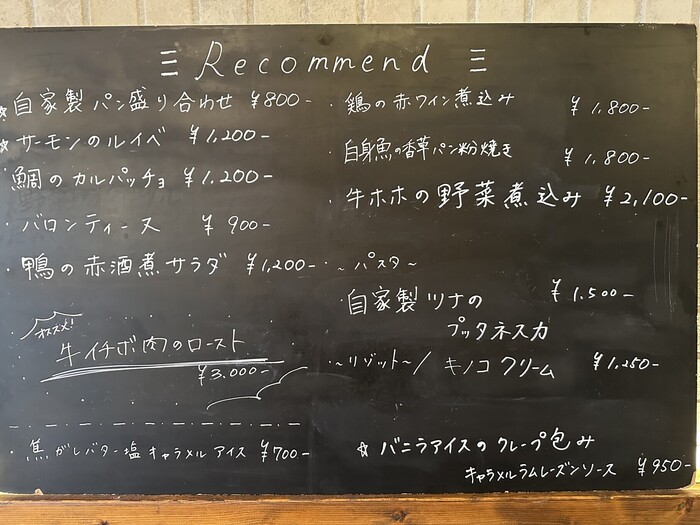 Recommend
☆自家製パン盛り合わせ ¥800-
☆サーモンのルイベ ¥1,200-
鯛のカルパッチョ ¥1,200-
・バロンティーヌ ¥900-
・鴨の赤酒煮サラダ ¥1,200-
オススメ!
牛イチボ肉のロースト
¥3,000-
・焦がしバター塩キャラメルアイス ¥700-
・鶏の赤ワイン煮込み ¥1,800-
・白身魚の香草パン粉焼き ¥1,800-
・牛ホホの野菜煮込み ¥2,100-
~パスタ~
・自家製ツナの ¥1,500-
プッタネスカ
~リゾット~/キノコクリーム ¥1,250-
☆バニラアイスのクレープ包み
キャラメルラムレーズンソース ¥950-